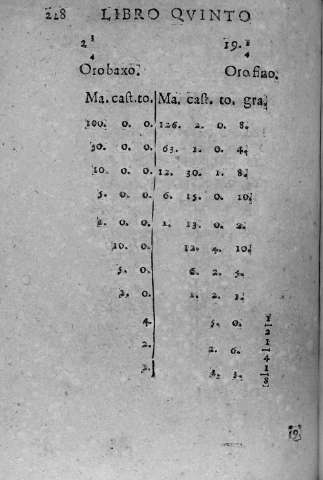 228 LIBRO QVINTO
2 1/4 19. 1/4
Oro baxo. Oro fino.
Ma. cast. to. Ma. cast. to. gra.
100. 0. 0. 126. 2. 0. 8.
50. 0. 0. 63. 1. 0. 4.
10. 0. 0. 12. 30. 1. 8.
5. 0. 0. 6. 15. 0. 10.
1. 0. 0. 1. 13. 0. 2.
10. 0. 12. 4. 10.
5. 0. 6. 2. 5.
1. 0. 1. 2. 1.
4. 5. 0. 1/2
2. 2. 6. 1/4
1. 1/8